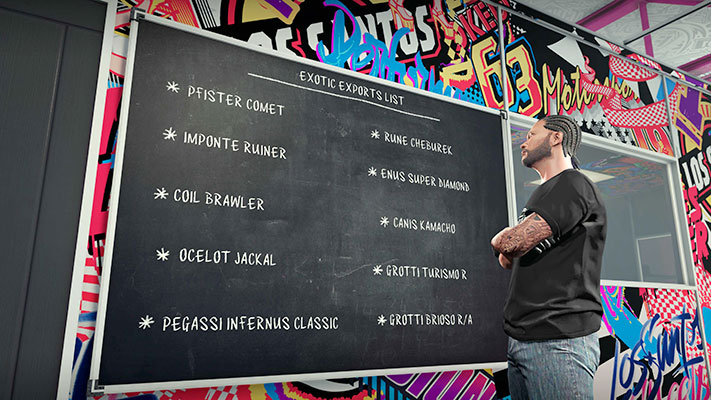 EXOTIC EXPORTS LIST
* PFISTER COMET
* IMPONTE RUINER
* COIL BRAWLER
* OCELOT JACKAL
* PEGASSI INFERNUS CLASSIC
* RUNE CHEBUREK
* ENUS SUPER DIAMOND
* CANIS KAMACHO
* GROTTI TURISMO R
* GROTTI BRIOSO R/A
LOS SANTOS
63
Los Santos